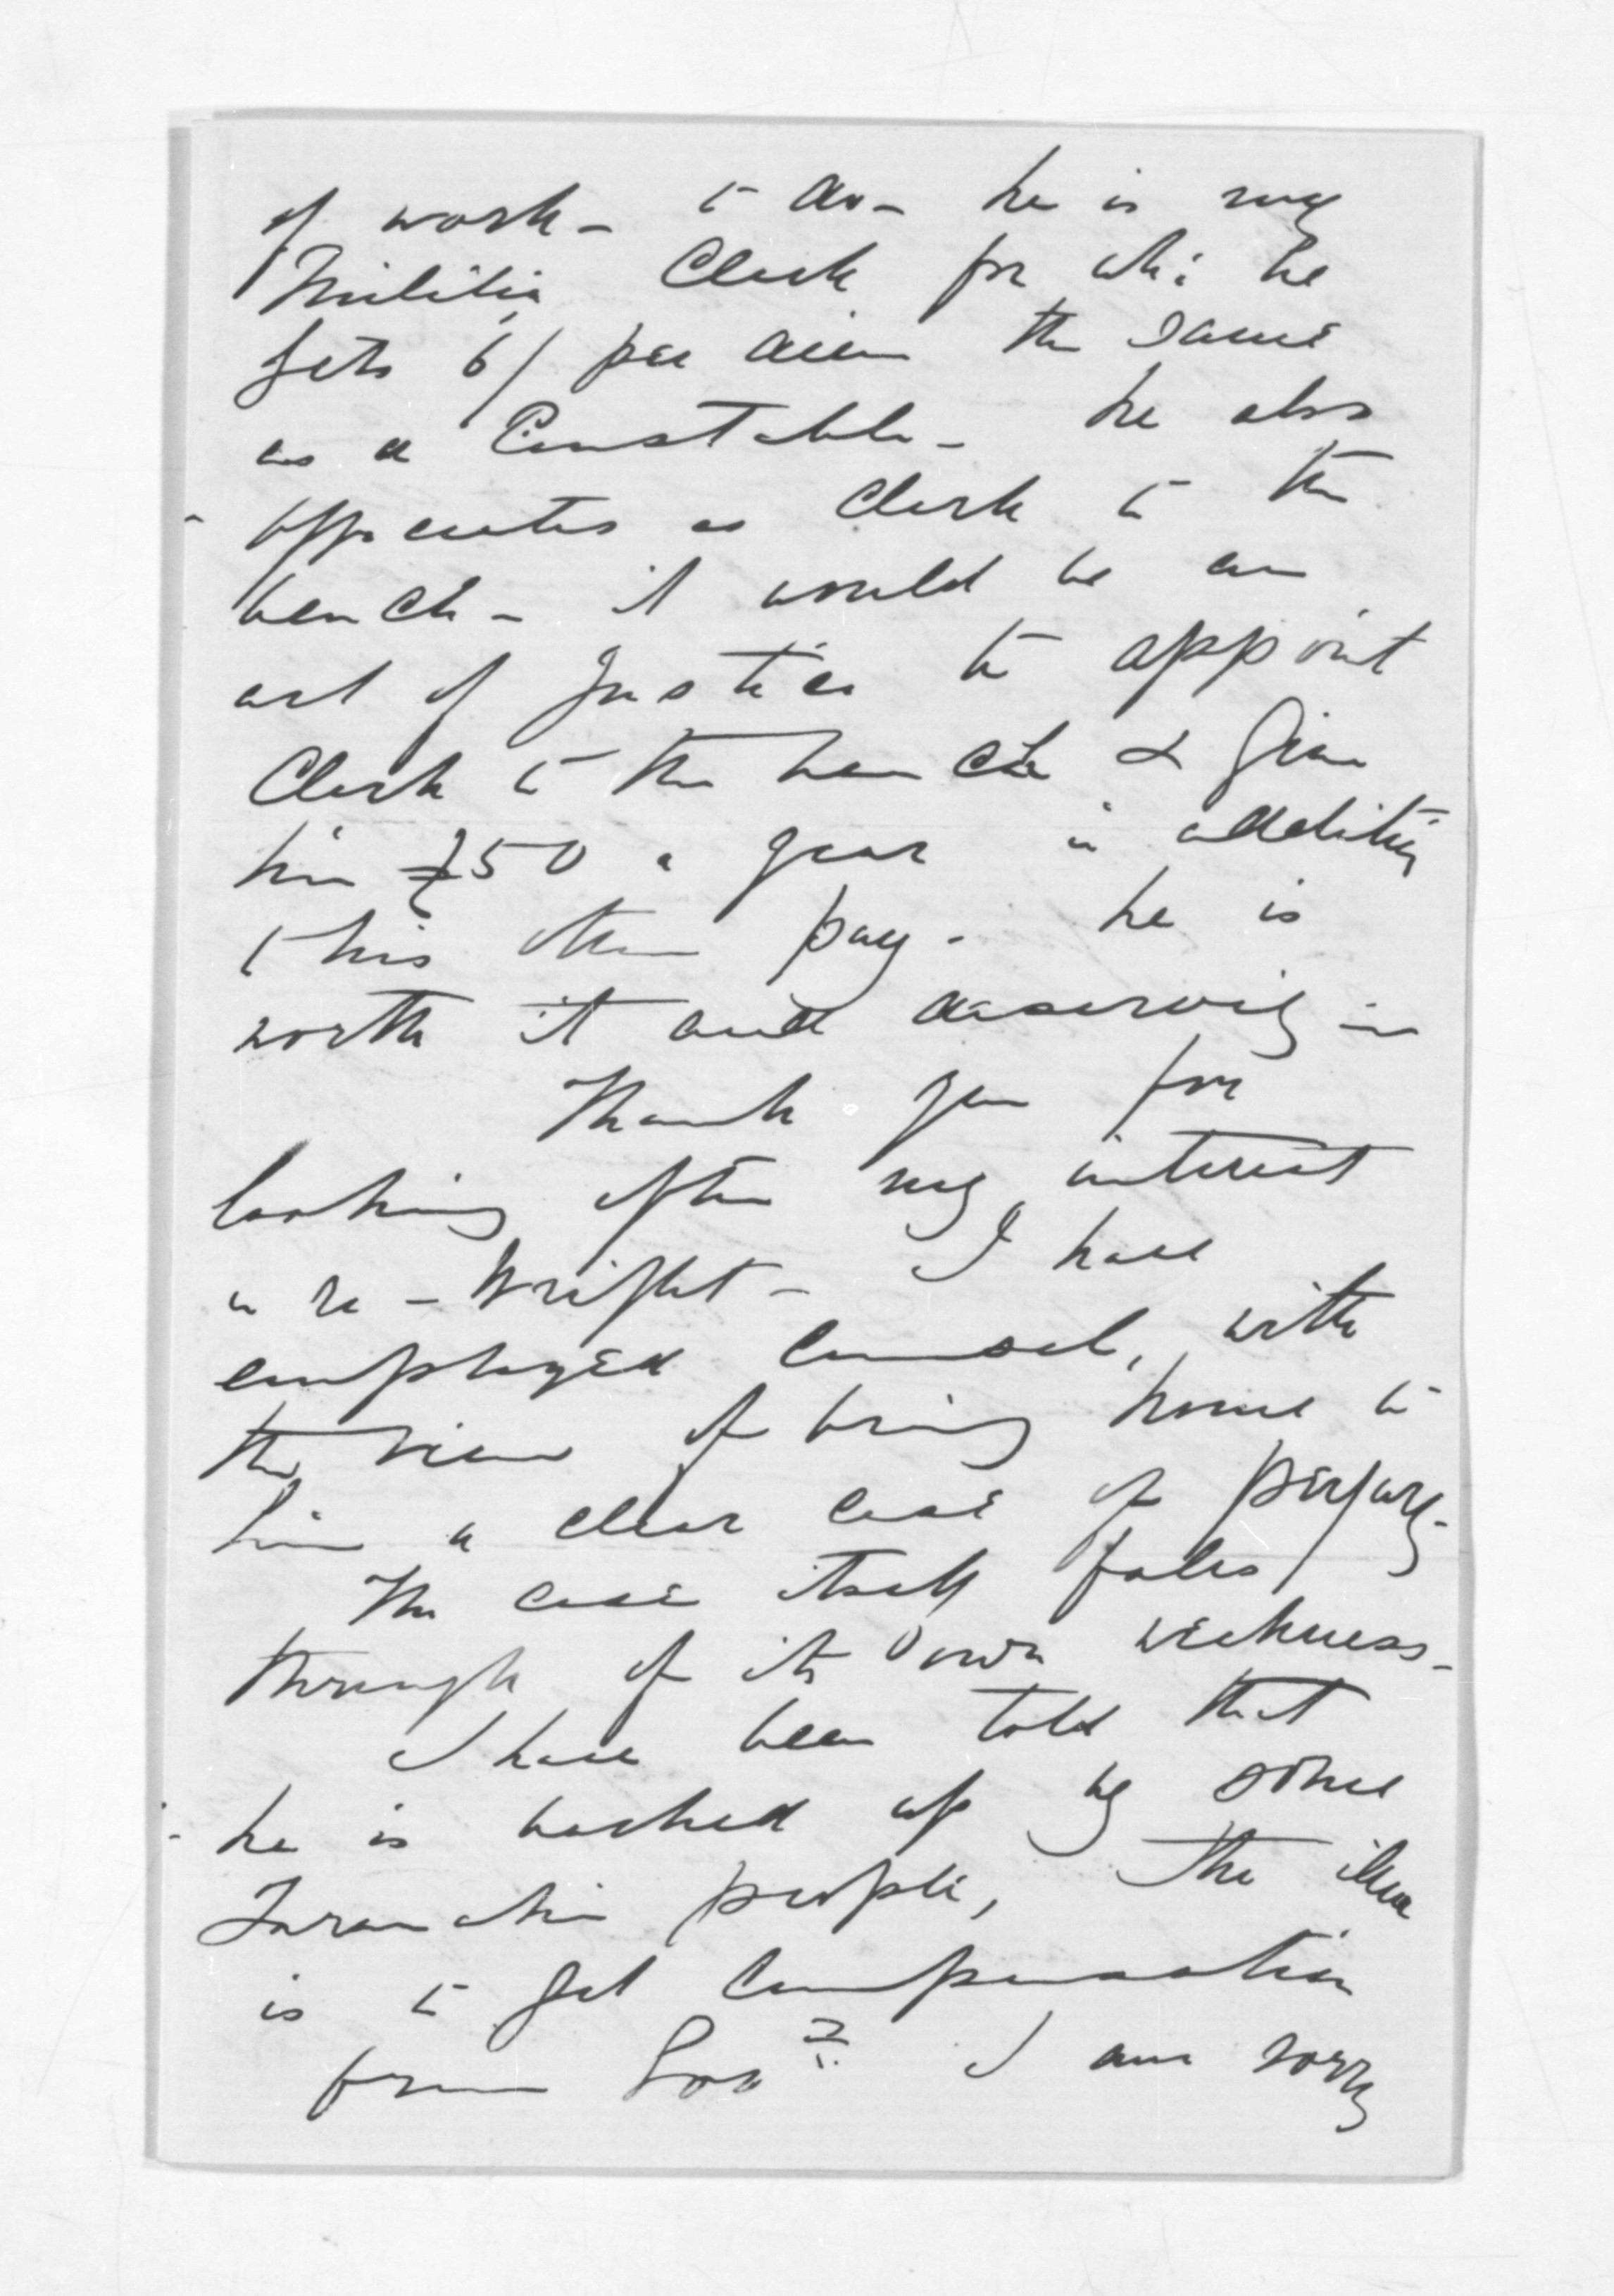 of work - to do - he is my
Militia Clerk for wh: he
gets 6/ per diem the same
as a Constable - he also
officiates as Clerk to the
bench - it would be an
act of Justice to appoint
Clerk to the bench & give
him £50 a year in addition
to his other pay - he is
worth it and deserving -
Thank you for
looking after my interest
in re - Wright - I have
employed Counsel, with
the view of bring home to
him a clear case of perjury -
The case itself falls
through of its own weakness -
I have been told that
he is backed up by some
Taranaki people, The idea
is to get Compensation
from Govt. I am sorry